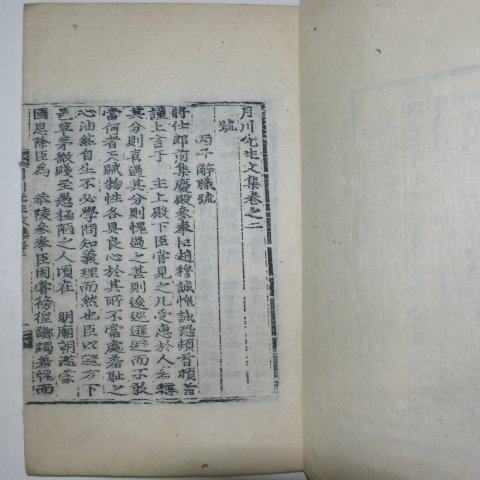 月川先生文集卷之二
疏
丙子辭職疏
將仕郎前集慶殿參奉臣趙穆誠惶誠恐頓首頓首
謹上言于 主上殿下臣嘗見之凡受惠於人者稱
其分則喜過其分則愧過之甚則逡巡遷避而不敢
當何者天賦物性各具良心於其所不當處羞恥之
心油然自生不必學問知義理而然也臣以遐方下
邑草茅微賤至愚極陋之人頃在 明廟朝濫蒙
國恩除臣爲 恭陵參奉臣固嘗徬徨躑躅若愧而